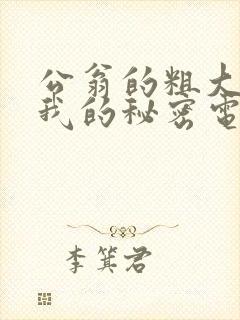 公翁的粗大
我的秘密电
李箕君